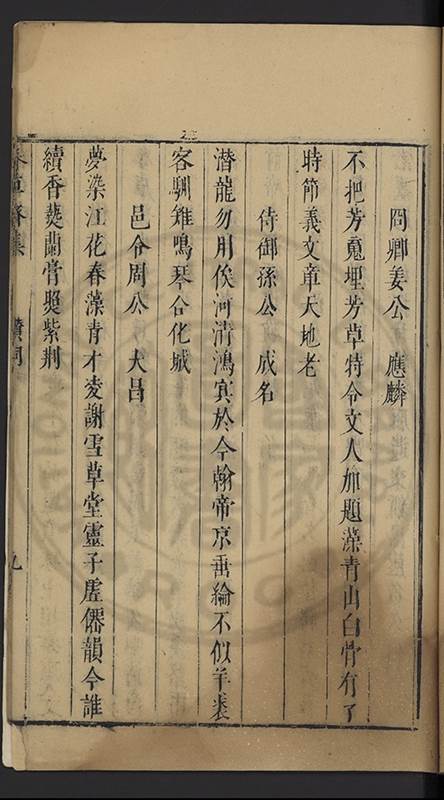 冏卿姜公　應麟
不把芳魂埋芳草特令文人加題藻青山白骨有了
時節義文章天地老
侍御孫公　成名
潛龍勿用俟河清鴻賔於今翰帝京垂綸不似羊裘
客馴雉鳴琴合化城
邑令周公　大昌
夢染江花春藻青才凌謝雪草堂靈子虛僊韻今誰
續香爇蘭膏煜紫荆
九